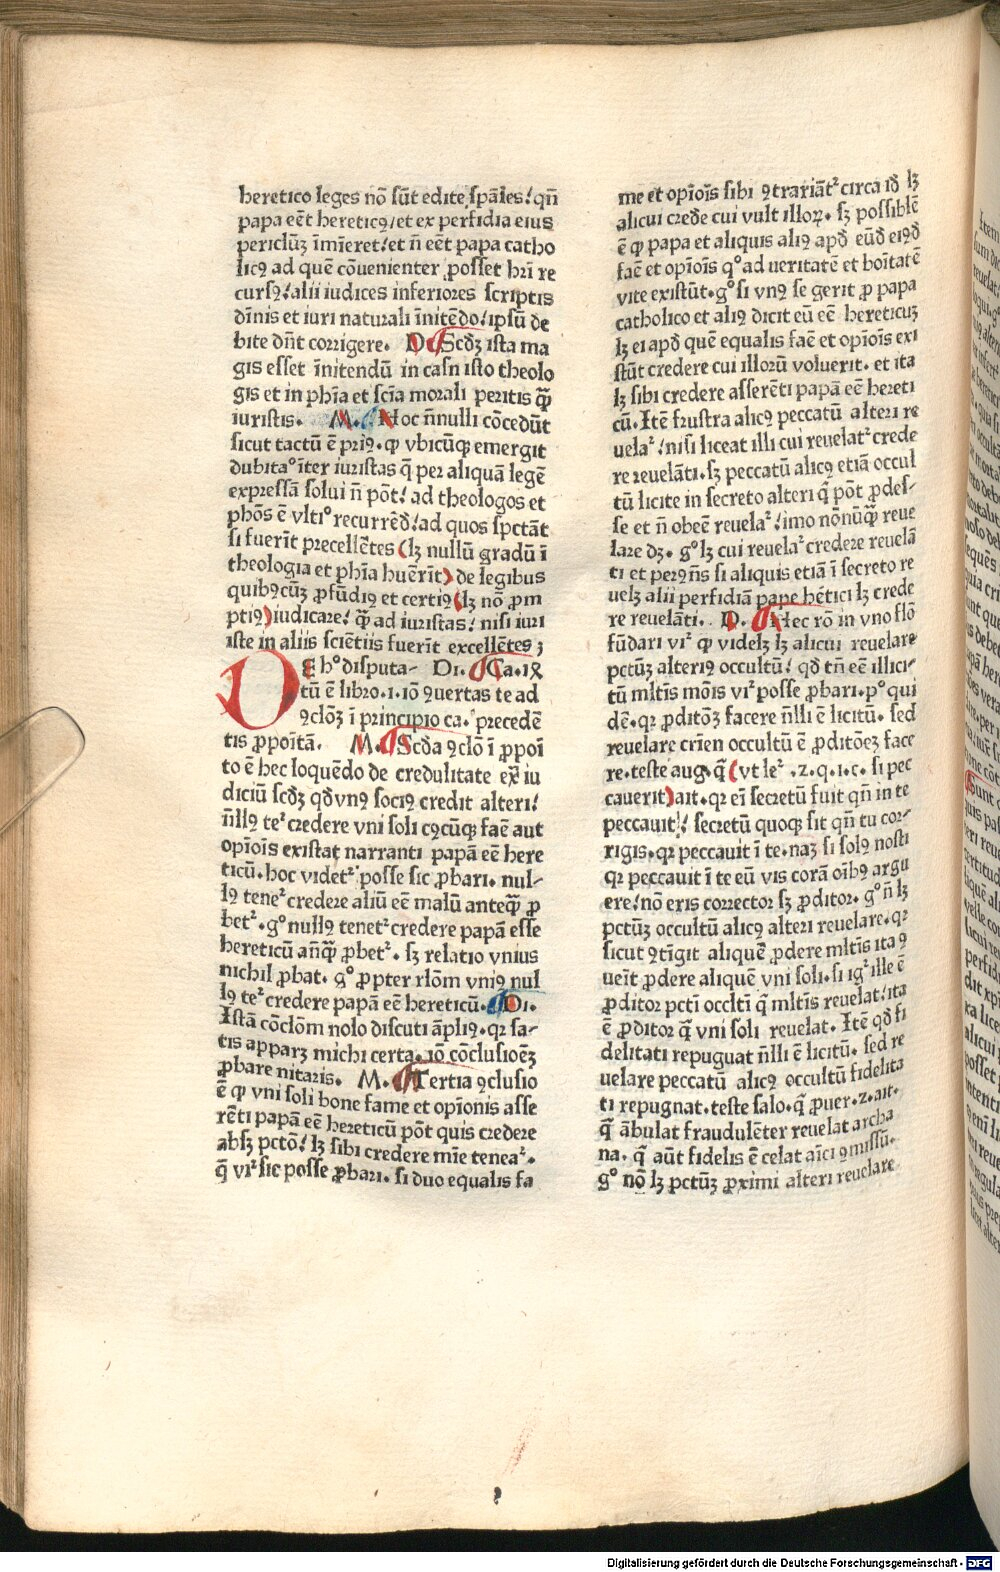 heretico leges nō sūt edite spāles! qñ
papa eēt hereticꝯ/et ex perfidia eius
periclūꝫ īmīeret! et ñ eēt papa catho
licꝯ ad quē cōuenienter posset hr̄i re
cursꝯ! alii iudices inferiores scriptis
dīnis et iuri naturali īnitēdo! ipsū de
bite dñt corrigere. D Scdꝫ ista ma
gis esset īnitendū in casu isto theolo
gis et in phīa et scīa morali peritis ꝙ̄
iuristis. M. Hoc ñnulli cōcedūt
sicut tactū ē priꝯ. ꝙ vbicūqꝫ emergit
dubitaᵒ īter iuristas q̄ per aliquā legē
expressā solui ñ pōt! ad theologos et
phōs ē vltiᵒ recurrēd̄! ad quos spctāt
si fuerīt precellētes (lꝫ nullū gradū ī
theologia et phīa huērīt) de legibus
quibꝯcūꝫ ꝓfūdiꝯ et certiꝯ (lꝫ nō ꝓm
ptiꝯ) iudicare! ꝙ̄ ad iuristas! nisi iuri
iste in aliis sciētiis fuerīt excellētes ;
DE hᵒ disputa- Di. Ca. ix
tū ē libro. i. iō ꝯuertas te ad
ꝯclōꝫ ī principio ca. precedē
tis ꝓpoītā. M. Scda ꝯclō ī ꝓpoi
to ē hec loquēdo de credulitate ex̄ iu
diciū scdꝫ qd̄ vnꝯ sociꝯ credit alteri!
ñllꝯ teᵗ credere vni soli cꝯcūqꝫ faē aut
opiōis existat narranti papā eē here
ticū. hoc videtᵗ posse sic ꝓbari. nul-
lꝯ teneᵗ credere aliū eē malū anteꝙ̄ ꝓ
betᵗ. gᵒ nullꝯ tenetᵗ credere papā esse
hereticū añꝙ̄ ꝓbetᵗ. sꝫ relatio vnius
nichil ꝓbat. gᵒ ꝓpter rlōm vniꝯ nul
lꝯ teᵗ credere papā eē hereticū. Di.
Istā cōclōm nolo discuti āpliꝯ. qꝛ sa-
tis apparꝫ michi certa. iō cōclusioēꝫ
ꝓbare nitaris. M. Tertia ꝯclusio
ē ꝙ vni soli bone fame et opīonis asse
rēti papā eē hereticū pōt quis credere
absqꝫ pctō! lꝫ sibi credere mīe teneaᵗ.
q̄ viᵗ sic posse ꝓbari. si duo equalis fa
me et opīoīs sibi ꝯtrariāt᷑ circa id̄ lꝫ
alicui crede cui vult illoꝝ. sꝫ possiblē
ē ꝙ papa et aliquis aliꝯ apd̄ eūd̄ eiꝯd̄
faē et opīoīs qᵒ ad ueritatē et boītatē
vite existūt. gᵒ si vnꝯ se gerit ꝓ papa
catholico et aliꝯ dicit eū eē hereticuꝫ
lꝫ ei apd̄ quē equalis faē et opīoīs exi
stūt credere cui illorū voluerit. et ita
lꝫ sibi credere asserēti papā eē hereti
cū. Itē frustra alicꝯ peccatū alteri re
uelaᵗ! nisi liceat illi cui reuelatᵗ crede
re reuelāti. sꝫ peccatū alicꝯ etiā occul
tū licite in secreto alteri q̄ pōt ꝓdes-
se et ñ obeē reuelaᵗ! imo nōnūꝙ̄ reue
lare dꝫ. gᵒ lꝫ cui reuelaᵗ credere reuelā
ti et perꝯñs si aliquis etiā ī secreto re
uelꝫ alii perfidiā pape hētici lꝫ crede
re reuelāti. D. Hec rō in vno flō
fūdari viᵗ ꝙ videlꝫ lꝫ alicui reuelare
pctūꝫ alteriꝯ occultū! qd̄ tñ eē illici-
tū mltīs mōis viᵗ posse ꝓbari. pᵒ qui
dē. qꝛ ꝓditōꝫ facere ñlli ē licitū. sed
reuelare crīen occultū ē ꝓditōeꝫ face
re. teste aug. q̄ (vt leᵗ .z. q. i. c. si pec
cauerit) ait. qꝛ ei secretū fuit qñ in te
peccauit! secretū quoqꝫ sit qñ tu cor-
rigis. qꝛ peccauit ī te. naꝫ si solꝯ nosti
qꝛ peccauit ī te eū vis corā oībꝯ argu
ere! nō eris corrector sꝫ ꝓditor. gᵒ ñ lꝫ
pctūꝫ occultū alicꝯ alteri reuelare. qꝛ
sicut ꝯtīgit aliquē ꝓdere mltīs ita ꝯ
ueīt ꝓdere aliquē vni soli. si igᵗ ille ē
ꝓditor pcti occlti q̄ mltīs reuelat! ita
ē ꝓditor q̄ vni soli reuelat. Itē qd̄ fi
delitati repuguat ñlli ē licitū. sed re
uelare peccatū alicꝯ occultū fidelita
ti repugnat. teste salo. q̄ ꝓuer. z. ait.
q̄ ābulat fraudulēter reuelat archa
na. q̄ aūt fidelis ē celat aīci ꝯmissū.
gᵒ nō lꝫ pctūꝫ ꝓximi alteri reuelare
Digitalisierung gefördert durch die Deutsche Forschungsgemeinschaft - DFG